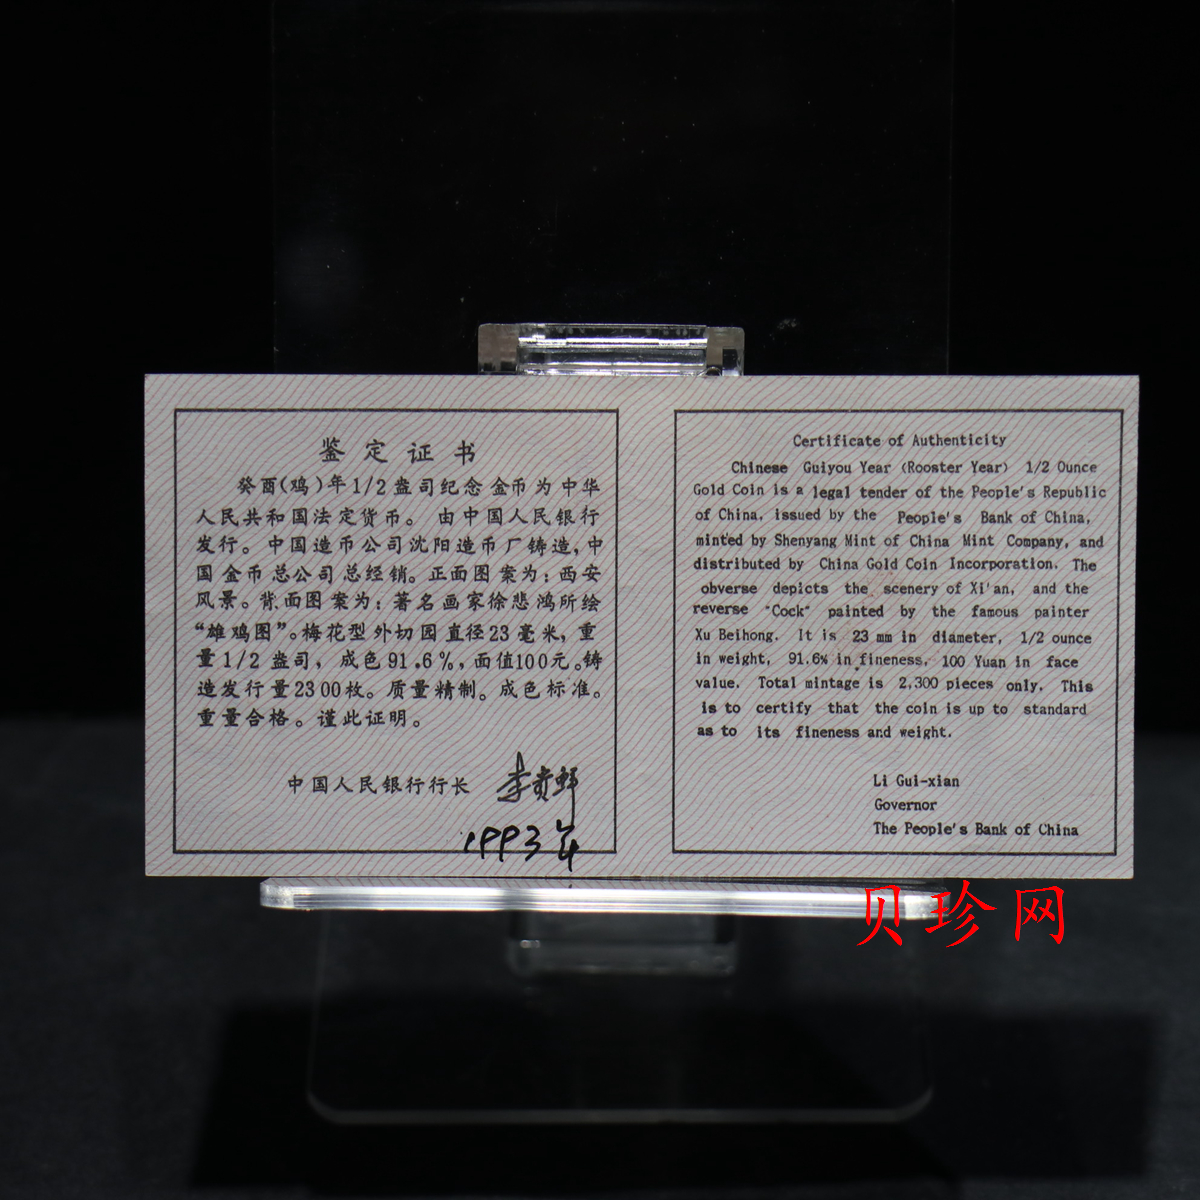 鉴定证书
癸酉(鸡)年1/2盎司纪念金币为中华
人民共和国法定货币。由中国人民银行
发行。中国造币公司沈阳造币厂铸造,中
国金币总公司总经销。正面图案为:西安
风景。背面图案为:著名画家徐悲鸿所绘
“雄鸡图”。梅花型外切园直径23毫米,重
量1/2盎司,成色91.6%,面值100元。铸
造发行量2300枚。质量精制。成色标准。
重量合格。谨此证明。
中国人民银行行长 李贵鲜
1993年
Certificate of Authenticity
Chinese Guiyou Year (Rooster Year) 1/2 Ounce
Gold Coin is a legal tender of the People's Republic
of China, issued by the People's Bank of China,
minted by Shenyang Mint of China Mint Company, and
distributed by China Gold Coin Incorporation. The
obverse depicts the scenery of Xi'an, and the
reverse "Cock" painted by the famous painter
Xu Beihong. It is 23 mm in diameter, 1/2 ounce
in weight, 91.6% in fineness, 100 Yuan in face
value. Total mintage is 2,300 pieces only. This
is to certify that the coin is up to standard
as to its fineness and weight.
Li Gui-xian
Governor
The People's Bank of China
贝珍网